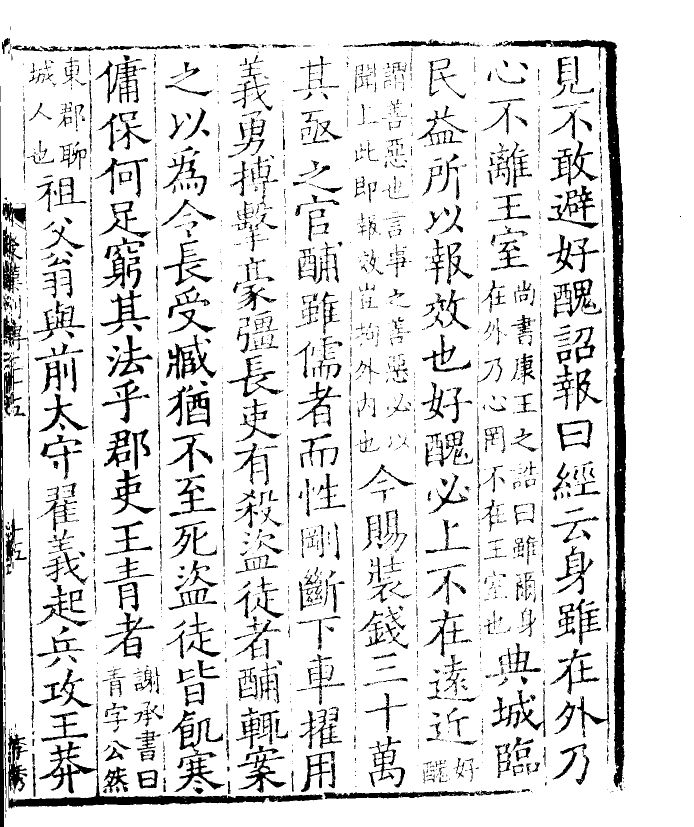 見不敢避好醜詔報曰經云身雖在外乃
心不離王室
尚書康王之誥曰雖爾身
在外乃心罔不在王室也
典城臨
民益所以報效也好醜必上不在遠近
好
醜
謂善惡也言事之善惡必以
聞上此即報效豈拘外内也
今賜裝錢三十萬
其亟之官酺雖儒者而性剛斷下車擢用
義勇搏擊豪彊長吏有殺盜徒者酺輒案
之以爲令長受臧猶不至死盜徒皆飢寒
傭保何足窮其法乎郡吏王青者
謝承書曰
青字公然
東郡聊
城人也
祖父翁與前太守翟義起兵攻王莽